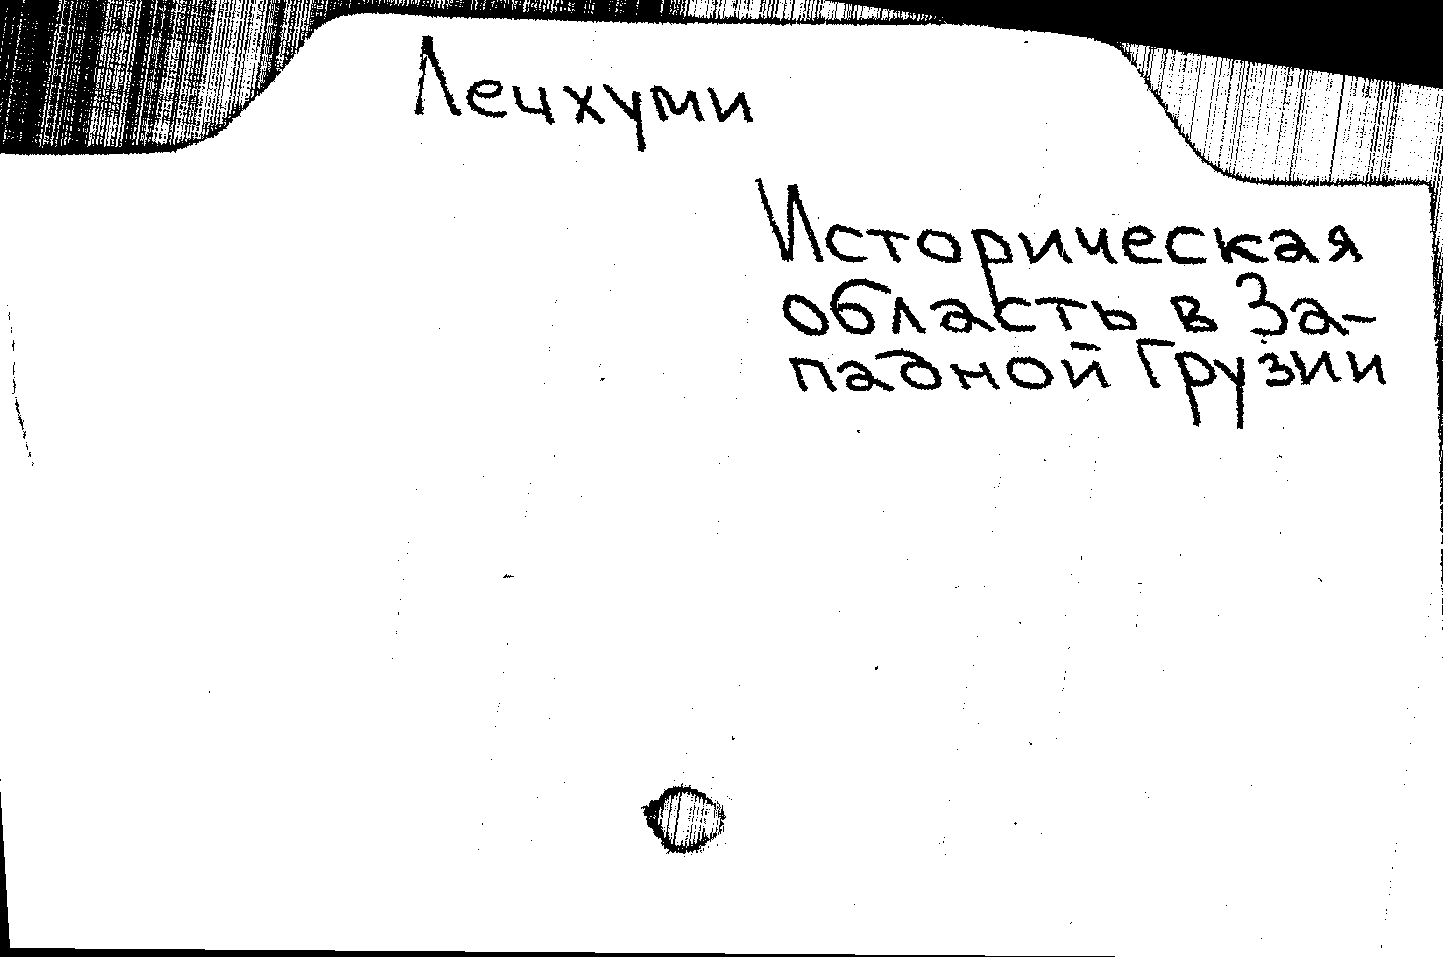 Лечхуми
Историческая
область в За-
падной Грузии